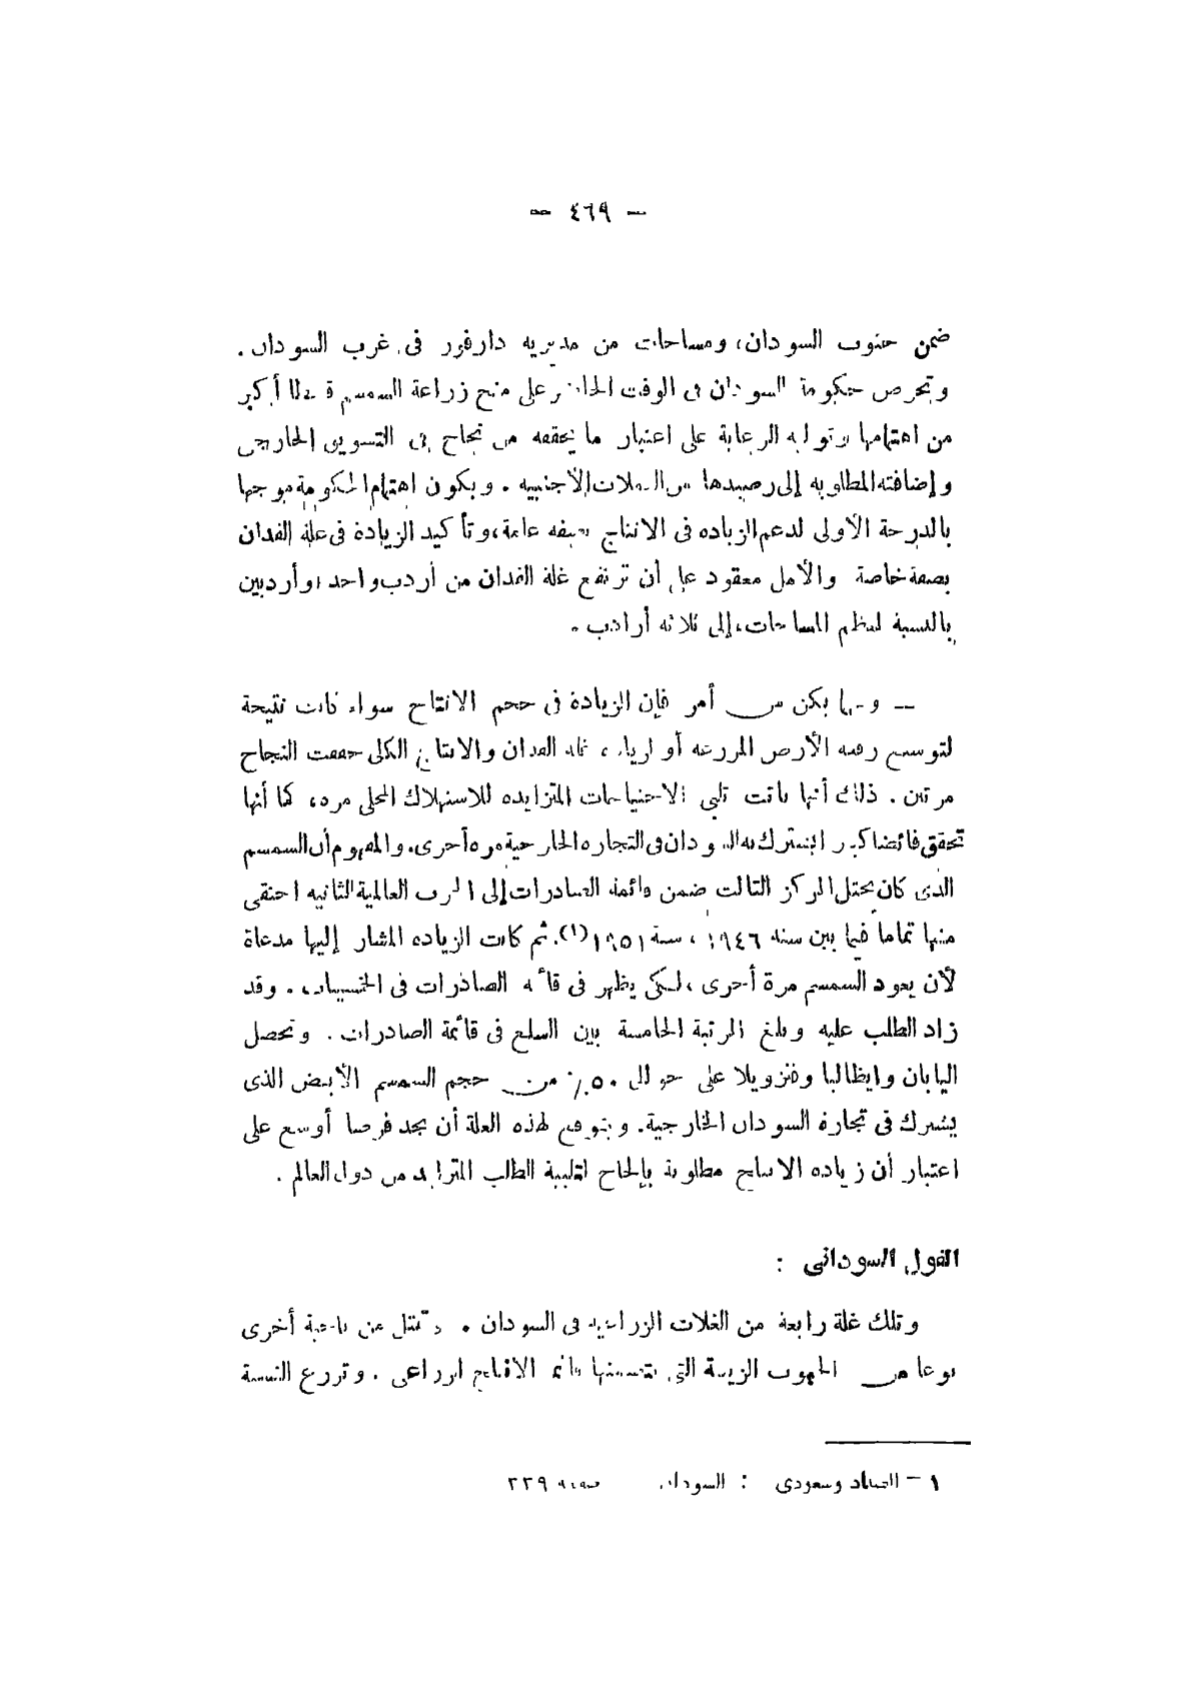 — ٤٦٩ —
ضمن جنوب السودان، ومساحات من مديرية دارفور فى غرب السودان.
وتحرص حكومة السودان فى الوقت الحاضر على منح زراعة السمسم أكبر
من اهتمامها وتوليه الرعاية على اعتبار ما يحققه من نجاح فى التسويق الخارجى
وإضافته المطلوبة إلى رصيدها من العملات الأجنبية. ويكون اهتمام الحكومة موجها
بالدرجة الأولى لدعم الزيادة فى الانتاج بصفة عامة، وتأكيد الزيادة فى غلة الفدان
بصفة خاصة والأمل معقود على أن ترتفع غلة الفدان من أردب واحد، وأردبين
بالنسبة لمعظم المساحات، إلى ثلاثة أرادب.
— ومهما يكن من أمر فإن الزيادة فى حجم الانتاج سواء كانت نتيجة
لتوسيع رقعة الأرض المزرعة أو غلة الفدان والانتاج الكلى حققت النجاح
مرتين. ذلك أنها باتت تلبى الاحتياجات المتزايدة للاستهلاك المحلى مرة، كما أنها
تحقق فائضا كبيرا يشترك به السودان فى التجارة الخارجية مرة أخرى. والمفهوم أن السمسم
الذى كان يحتل المركز الثالث ضمن قائمة الصادرات إلى الحرب العالمية الثانية اختفى
منها تماما فيما بين سنة ١٩٤٦، سنة ١٩٥١(١). ثم كانت الزيادة المشار إليها مدعاة
لأن يعود السمسم مرة أخرى، لكى يظهر فى قائمة الصادرات فى الخمسينات. وقد
زاد الطلب عليه وبلغ المرتبة الخامسة بين السلع فى قائمة الصادرات. وتحصل
اليابان وايطاليا وفنزويلا على حوالى ٥٠٪ من حجم السمسم الأبيض الذى
يشترك فى تجارة السودان الخارجية. ويتوقع لهذه الغلة أن يجد فرصا أوسع على
اعتبار أن زيادة الانتاج مطلوبة بإلحاح لتلبية الطلب المتزايد من دول العالم.
الفول السودانى :
وتلك غلة رابعة من الغلات الزراعية فى السودان. وتمثل من ناحية أخرى
نوعا من الحبوب الزيتية التى يتضمنها الانتاج الزراعى. وتزرع النسبة
١ — الصياد وسعودى : السودان صفحة ٢٣٩